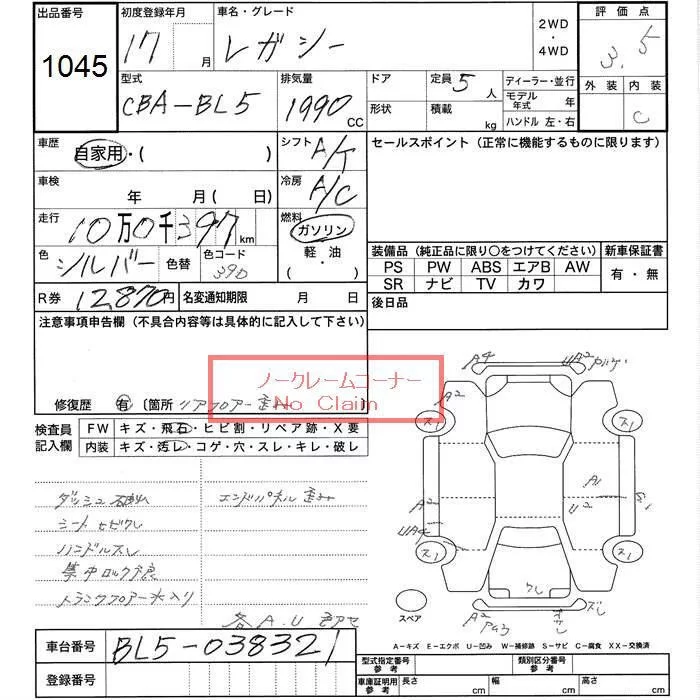 出品番号 初度登録年月 車名・グレード 2WD・4WD 評価点
1045 17 月 レガシー 3.5
型式 排気量 ドア 定員 5 人 ディーラー・並行 外装 内装
CBA-BL5 1990 CC 形状 積載 kg モデル年式 年 C
ハンドル 左・右
車歴 自家用・( ) シフト A/T セールスポイント (正常に機能するものに限ります)
車検 年 月 ( 日) 冷房 A/C
走行 10万0千397 km 燃料 ガソリン
色 シルバー 色替 色コード 39D 軽・油 ( ) 装備品 (純正品に限り○をつけてください) 新車保証書
PS PW ABS エアB AW 有・無
SR ナビ TV カワ
R券 12,870円 名変通知期限 月 日 後日品
注意事項申告欄 (不具合内容等は具体的に記入して下さい)
ノークレームコーナー
No Claim
修復歴 有 〔箇所 リアフロアー歪み
検査員記入欄 FW キズ・飛石・ヒビ割・リペア跡・X要
内装 キズ・汚レ・コゲ・穴・スレ・キレ・破レ
A4 UA2
A2
ス1 ス1
A1
A2 U2 S1
UA4
ス1 ス1
ダッシュ エンドパネル歪み
シート
ハンドルスレ
集中ロック不良
トランクフロアー水入り
各A.U
スペア A2
車台番号 BL5-038321
登録番号
A-キズ E-エクボ U-凹み W-補修跡 S-サビ C-腐食 XX-交換済
型式指定番号 参考 類別区分番号 参考
車庫証明用 参考 長さ cm 幅 cm 高さ cm